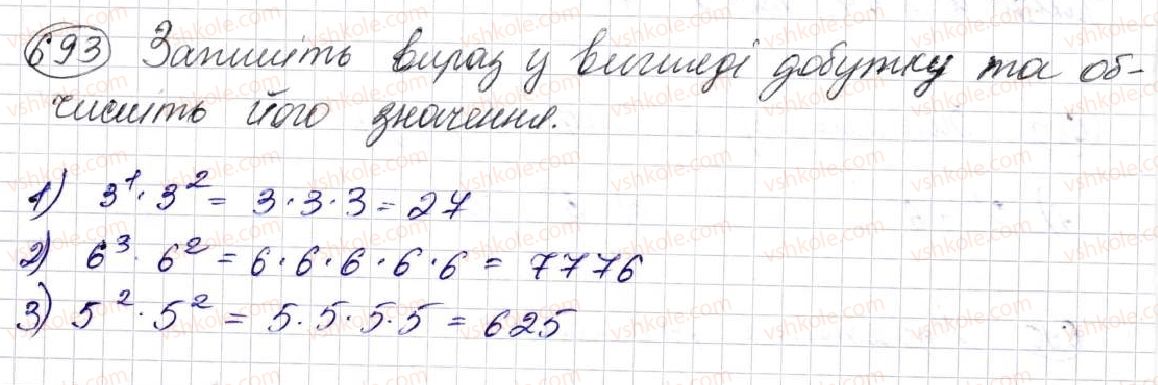 693 Запишіть вираз у вигляді добутку та об-
числіть його значення.
1) 3¹ · 3² = 3 · 3 · 3 = 27
2) 6³ · 6² = 6 · 6 · 6 · 6 · 6 = 7776
3) 5² · 5² = 5 · 5 · 5 · 5 = 625